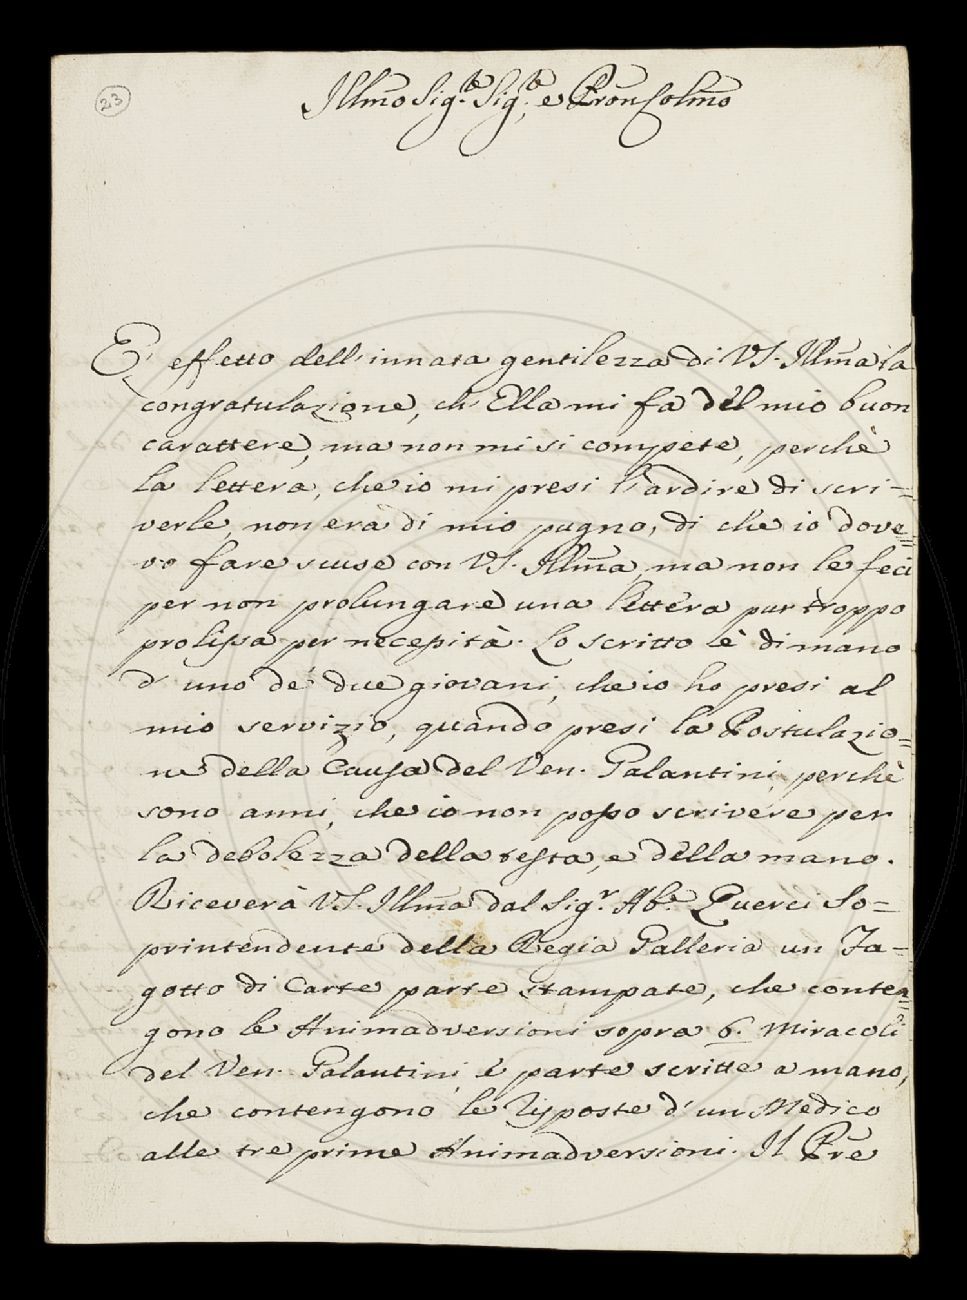 23
Illmo Sig.re Sig.re e Pron Colmo
E' effetto dell'innata gentilezza di VS. Illma la
congratulazione, ch'Ella mi fa del mio buon
carattere, ma non mi si compete, perchè
la lettera, che io mi presi l'ardire di scri=
verle, non era di mio pugno, di che io dove=
vo fare scuse con VS. Illma, ma non le feci
per non prolungare una lettera pur troppo
prolissa per necessità. Lo scritto è di mano
d'uno de' due giovani, che io ho presi al
mio servizio, quando presi la Postulazio=
ne della Causa del Ven. Galantini, perchè
sono anni, che io non posso scrivere per
la debolezza della testa, e della mano.
Riceverà VS. Illma dal Sig.r Ab.e Querci So=
printendente della Regia Galleria un Fa=
gotto di Carte parte stampate, che conten=
gono le Animadversioni sopra 6. Miracoli
del Ven. Galantini, e parte scritte a mano,
che contengono le risposte d'un Medico
alle tre prime Animadversioni. Il Pre